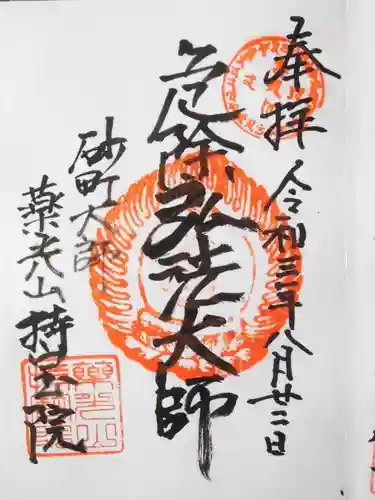 奉拝
令和三年八月廿二日
厄除弘法大師
砂町大師
薬光山持宝院